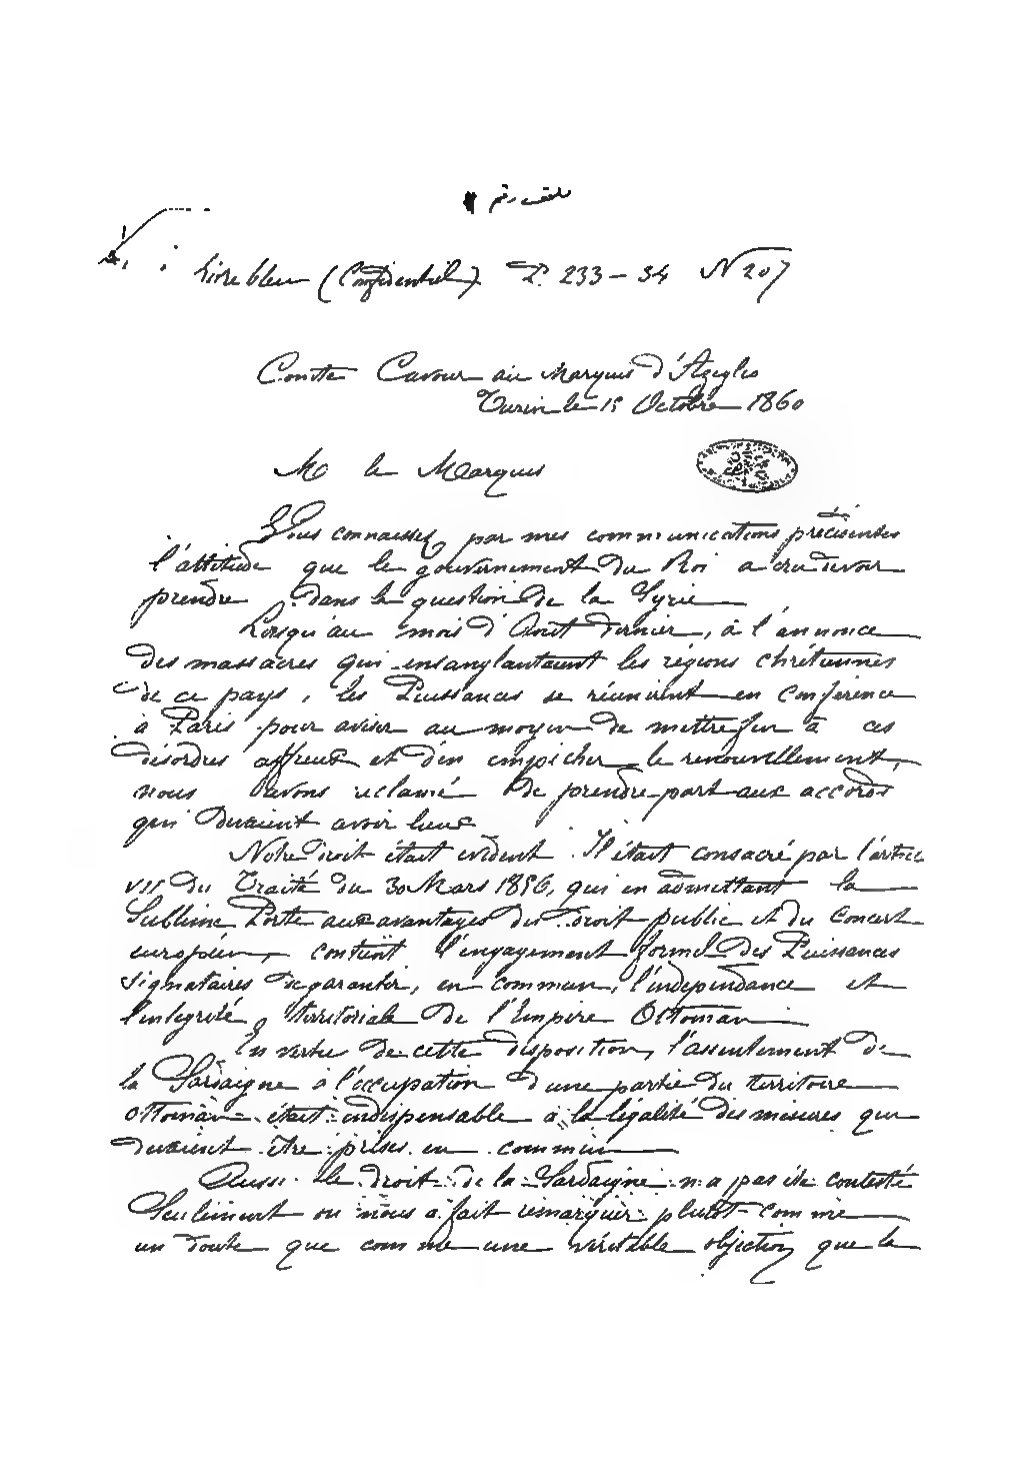 ملف رقم
Livre bleu (Confidentiel) P. 233-34 N 207
Comte Cavour au Marquis d'Azeglio
Turin le 15 Octobre 1860
M le Marquis
Vous connaissez par mes communications précédentes
l'attitude que le gouvernement du Roi a cru devoir
prendre dans la question de la Syrie
Lorsqu'au mois d'Août dernier, à l'annonce
des massacres qui ensanglantaient les régions chrétiennes
de ce pays, les Puissances se réunirent en conférence
à Paris pour aviser au moyen de mettre fin à ces
désordres affreux et d'en empêcher le renouvellement,
nous avons réclamé de prendre part aux accords
qui devaient avoir lieu
Notre droit était évident. Il était consacré par l'article
VII du Traité du 30 Mars 1856, qui en admettant la
Sublime Porte aux avantages du droit public et du concert
européen, contient l'engagement formel des Puissances
signataires de garantir, en commun, l'indépendance et
l'intégrité territoriale de l'Empire Ottoman
En vertu de cette disposition, l'assentiment de
la Sardaigne à l'occupation d'une partie du territoire
ottoman était indispensable à la légalité des mesures qui
devaient être prises en commun
Aussi le droit de la Sardaigne n'a pas été contesté
Seulement on nous a fait remarquer plutôt comme
un doute que comme une véritable objection que la